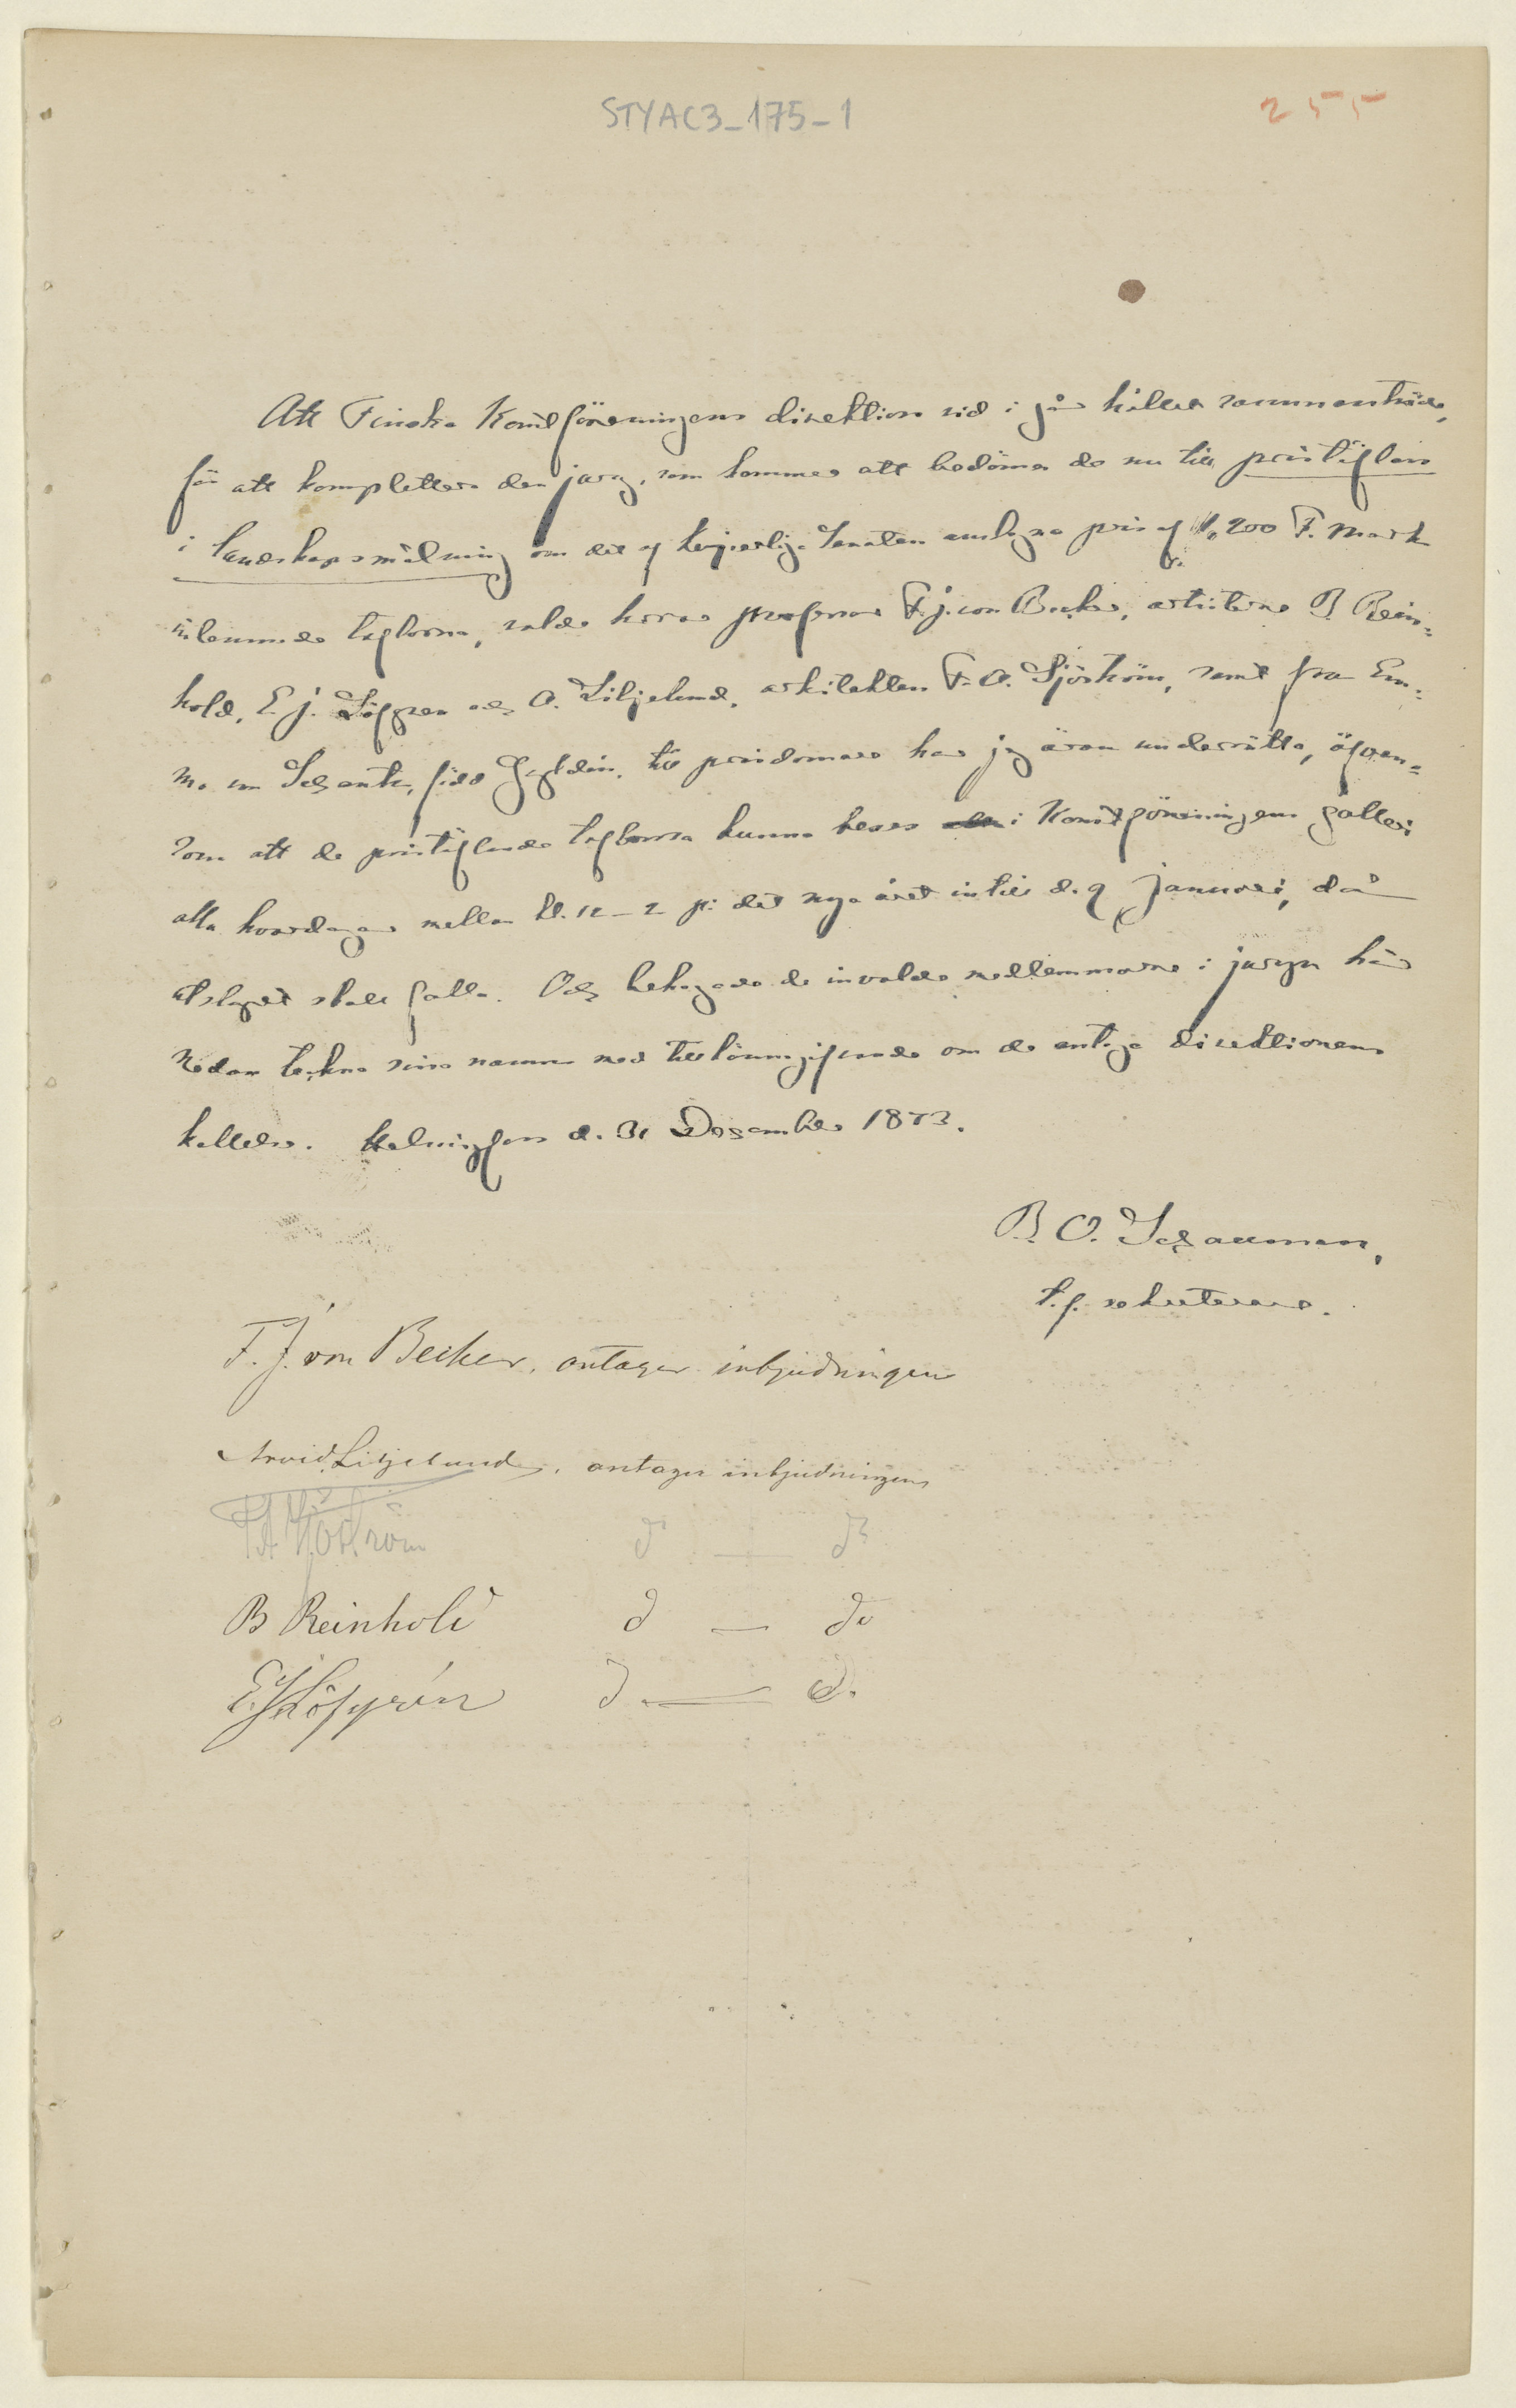 STYAC3_175-1
255
Att Finska Konstföreningens direktion vid i går hållet sammanträde,
för att komplettera den jury, som kommer att bedöma de nu till pristäflan
i landskapsmålning om det af Kejserliga Senaten anslagna pris af 1,200 F. mark
inlemnade taflorna, valde herrar professor F. J. von Becker, artisterne B. Rein=
hold, E. J. Löfgren och A. Liljelund, arkitekten F. A. Sjöström, samt fru Em=
ma von Schantz, född Gyldén, till prisdomare har jag äran underrätta, äfven=
som att de pristäflande taflorna kunna beses i Konstföreningens galleri
alla hvardagar mellan kl. 12–2 på det nya året intill d. 9 Januari, då
utslaget skall falla. Och behagade de invalde medlemmarne i juryn här
nedan teckna sina namn med tillkännagifvande om de antaga direktionens
kallelse. Helsingfors d. 31 December 1873.
B. O. Schauman,
t.f. sekreterare.
F. J. von Becker, antager inbjudningen
Arvid Liljelund, antager inbjudningen
FA Sjöström d° — d°
B Reinhold d — do
E J Löfgrén d — d.